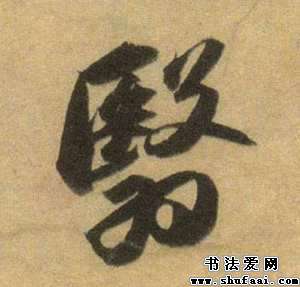 翳
书法爱网
www.shufaai.com